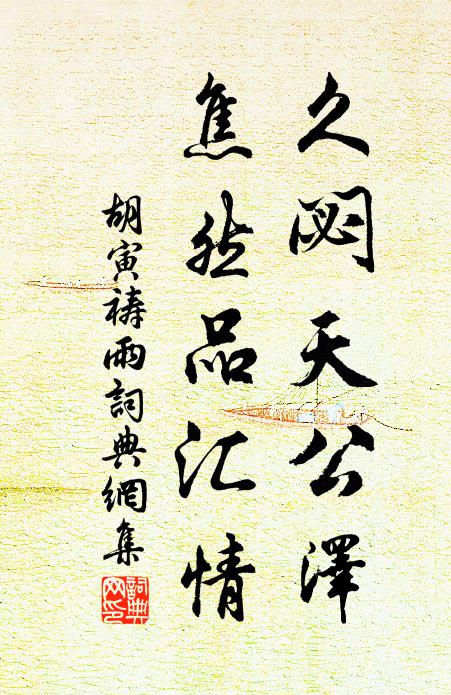 久閟天公澤
焦然品汇情
胡寅禱雨詞典網集
詞典